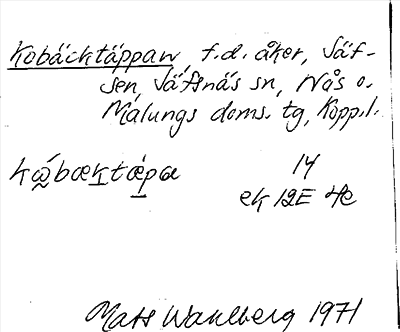 Kobäcktäppan, f.d. åker, Säf-
sen, Säfsnäs sn, Nås o.
Malungs doms. tg, Kopp.l.
kώ̨bæktæ̀pa 14
ek 12E 4e
Mats Wahlberg 1971